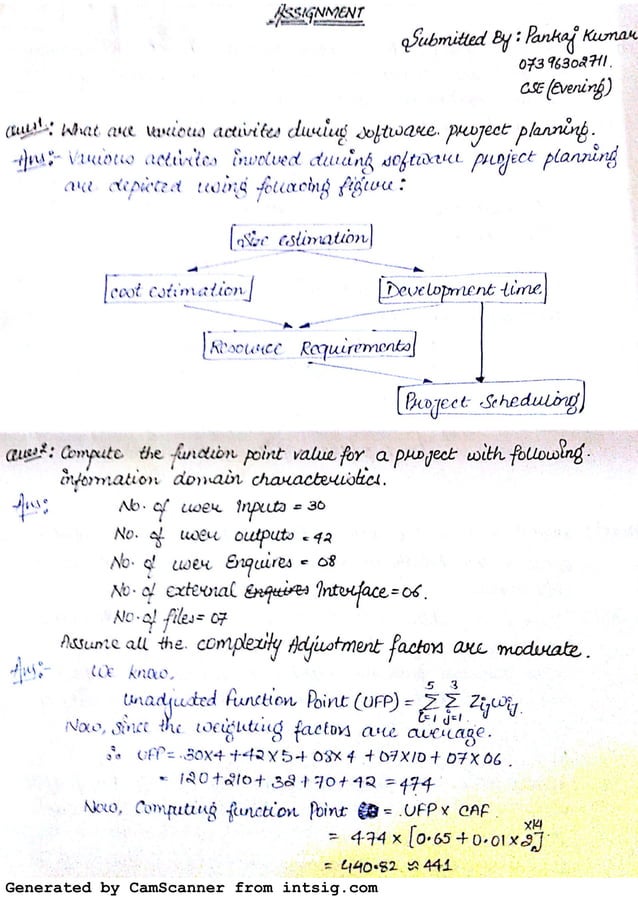 ASSIGNMENT
Submitted By: Pankaj Kumar
07396302711.
CSE (Evening)
Ques1: What are various activites during software project planning.
Ans:- Various activites involved during software project planning
are depicted using following figure:
Size estimation
cost estimation
Development time
Resource Requirements
Project Scheduling
Ques2: Compute the function point value for a project with following
information domain characteristics.
Ans:
No. of user Inputs = 30
No. of user outputs = 42
No. of user Enquires = 08
No. of external Enquires Interface = 06.
No. of files = 07
Assume all the complexity Adjustment factors are moderate.
Ans:- We know,
Unadjusted Function Point (UFP) = 5 Σ i=1 3 Σ j=1 Zij wij
Now, since the weighting factors are average.
∴ UFP = 30x4 + 42x5 + 08x4 + 07x10 + 07x06.
= 120+210+32+70+42 = 474
Now, Computing function Point = UFP x CAF
= 474 x [0.65 + 0.01 x x14]
= 440.82 ≈ 441
Generated by CamScanner from intsig.com